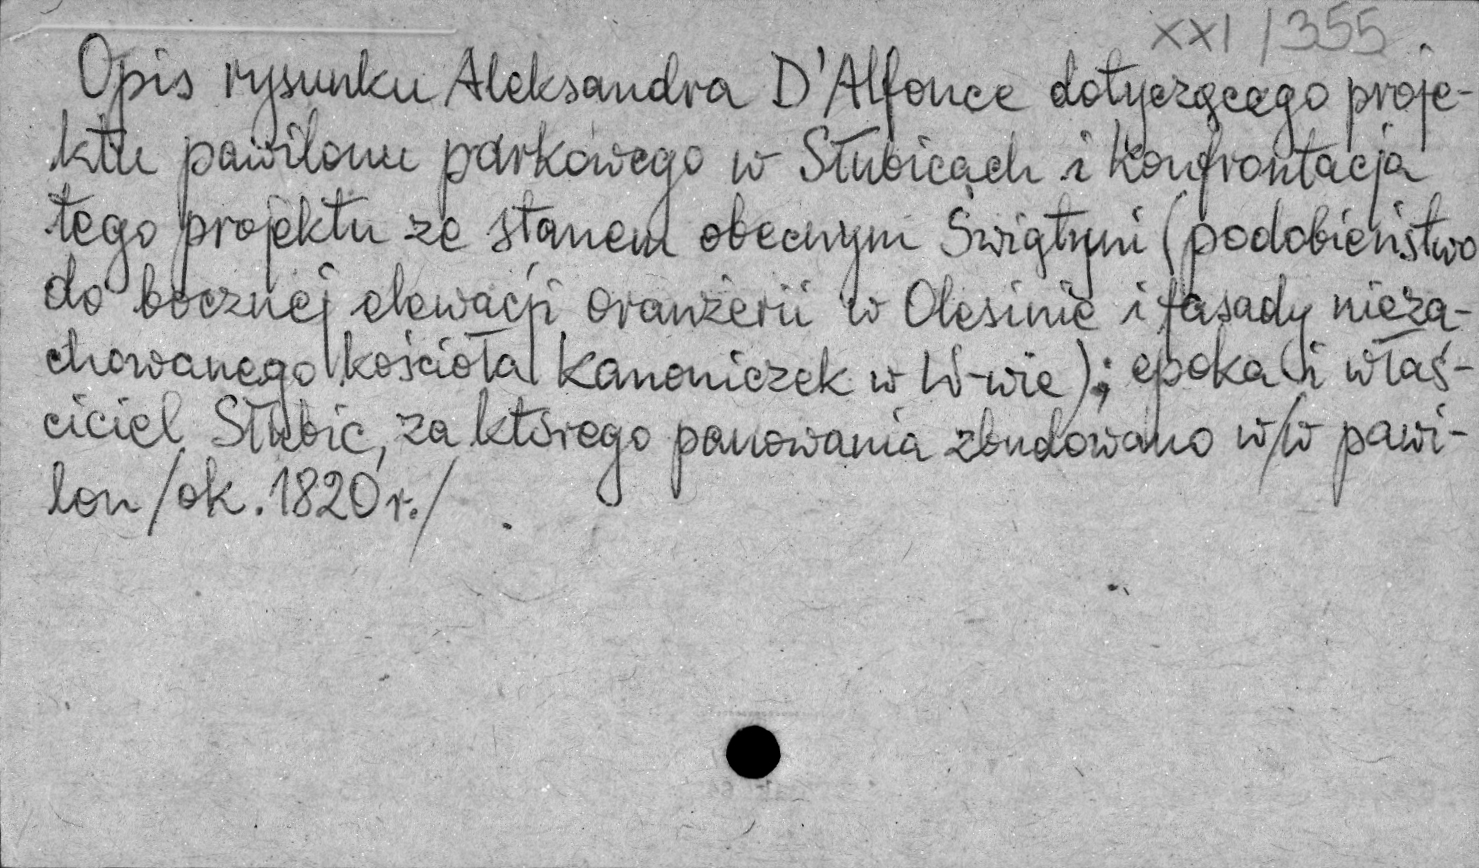 XXI/355
Opis rysunku Aleksandra D'Alfonce dotyczącego proje-
ktu pawilonu parkowego w Słubicach i konfrontacja
tego projektu ze stanem obecnym Świątyni (podobieństwo
do bocznej elewacji oranżerii w Olesinie i fasady nieza-
chowanego kościoła Kanoniczek w W-wie); epoka i właś-
ciciel Słubic, za którego panowania zbudowano w/w pawi-
lon /ok. 1820 r./